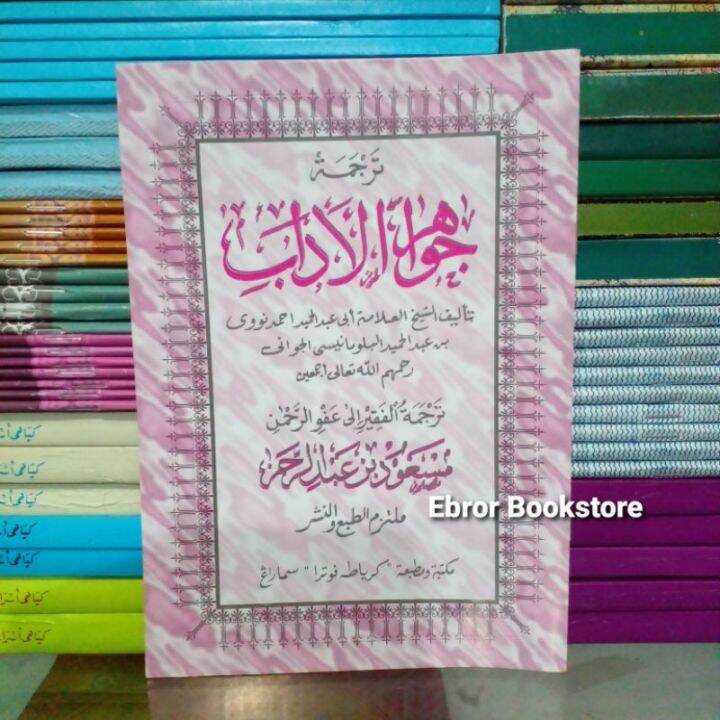 ترجمة
جواهر الاداب
تأليف الشيخ العلامة أبى عبد الحميد احمد نووى
بن عبد الحميد البلومانيسى الجوانى
رحمهم الله تعالى اجمعين
ترجمة الفقير إلى عفو الرحمن
مسعود بن عبد الرحمن
ملتزم الطبع والنشر
مكتبة ومطبعة "كرياطه فوترا" سمارڠ
Ebror Bookstore